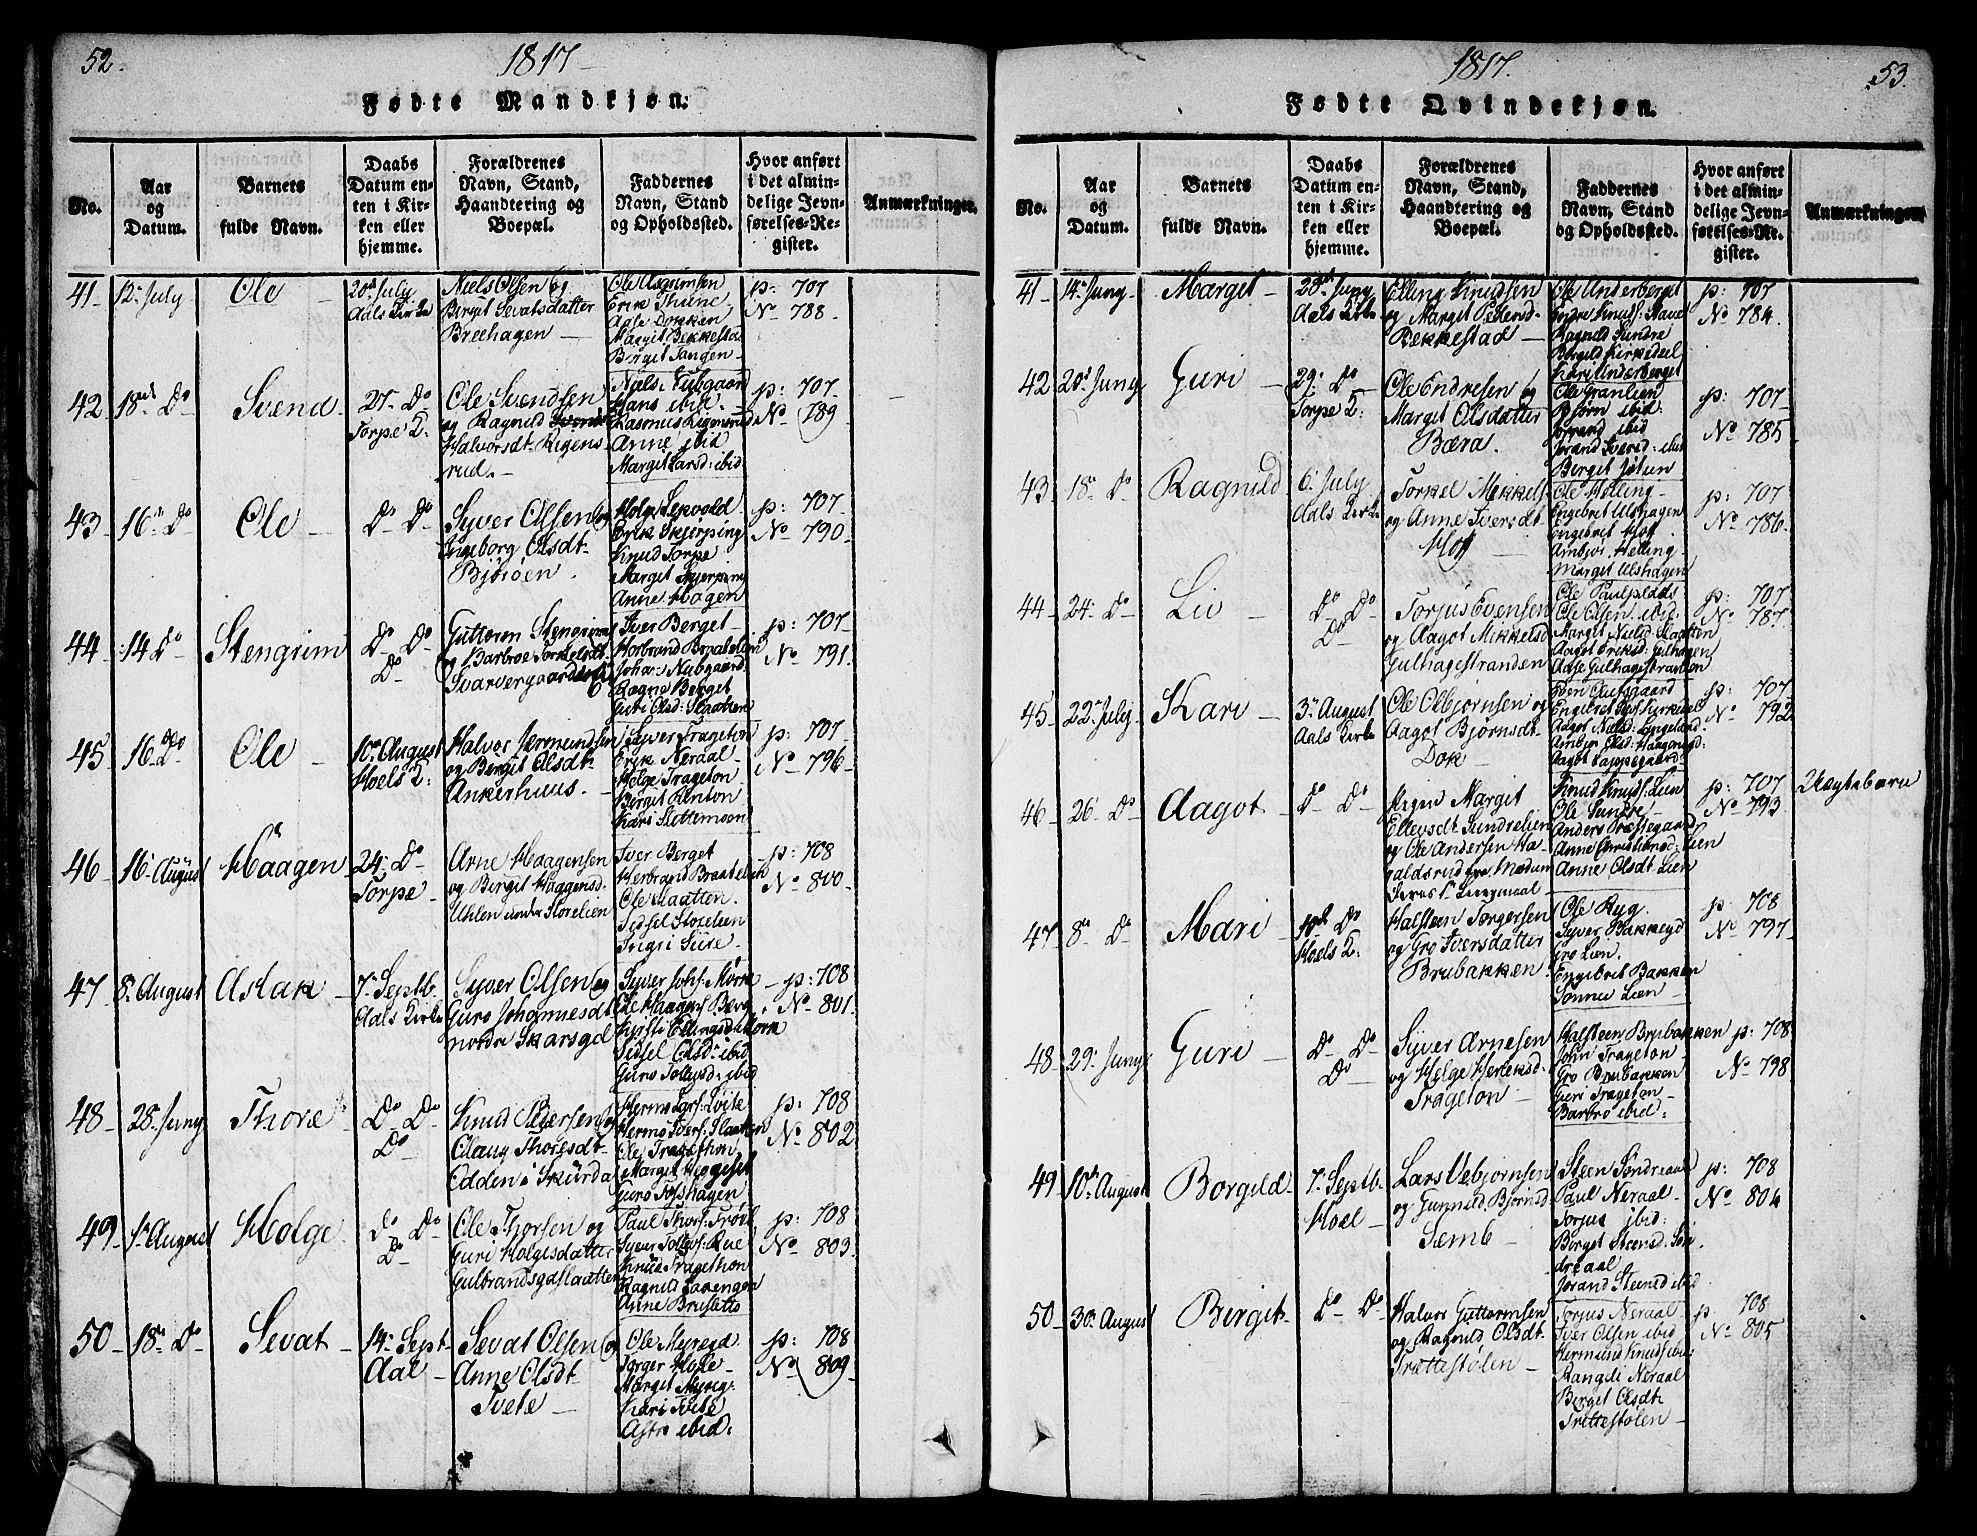 52.
1817
Fødte Mandkjøn.
No.
Aar
og
Datum.
Barnets
fulde Navn.
Daabs
Datum en-
ten i Kir-
ken eller
hjemme.
Forældrenes
Navn, Stand,
Haandtering og
Boepæl.
Faddernes
Navn, Stand
og Opholdsted.
Hvor anført
i det almin-
delige Jevn-
førelses-Re-
gister.
Anmærkninger.
41
12. July
Ole
20d July
Aals Kirke
Niels Olsen og
Birgit Sevatsdatter
Breehagen
Ole Asgrimsen
Erik Thune
Aase Dokken
Margit Bekkestad
Birgit Tangen
p: 707
No 788
42
18de Do
Svend
27. Do
Torpe K:
Ole Svendsen
og Ragnild
Halvorsdt. Rigens
rud.
Niels Nubgaard
Hans ibid
Rasmus Rigensrud
Anne ibid
Margit Larsd: ibid
p: 707
No 789
43
16. Do
Ole
Do Do
Syver Olsen og
Ingeborg Olsdt
Bjøröen
Helge Sekvold
Erik Skjerping
Knud Torpe
Margit Skjerping
Anne Hagen
p: 707
No 790
44
14 Do
Stengrim
Do Do
Do
Guttorm Stengrims
og Barbroe Torkelsdt
Svarvergaardseie
Iver Berget
Herbrand Braatelien
Johan Nubgaard
Ragne Berget
Guri Olsd: Slaatten
p: 707
No 791
45
16. Do
Ole
10. August
Hoels K:
Halvor Jermundsen
og Bergit Olsdt
Ankerhuus.
Syver Trageton
Erik Neraal
Helge Trageton
Birgit Renton
Kari Slettemoen
p: 707
No 796
46
16. August
Haagen
24. Do
Torpe
Arne Haagensen
og Birgit Haagensd.
Uhlen under Storelien
Iver Berget
Herbrand Braatelien
Ole Slaatten.
Sidsel Storelien
Ingri Siire
p: 708
No 800
47
8. August
Aslak
7. Septb.
Aals Kirke
Syver Olsen og
Guro Johannesdt
nordre Skarsgd
Syver Johs: Mørk
Ole Haagens: Berg
Kjersti Ellingsd: Mørk
Sidsel Olsd: ibid
Guro Tollevsd: ibid
p: 708
No 801
48
28. Juny
Thore
Do Do
Do
Knud Pedersen og
Olaug Thoresdt
Edden i Skurda
Ole Tragethon
Guro Tofshagen
p: 708
No 802
49
1. August
Holge
Do Do
Do
Ole Thorsen og
Guri Holgesdatter
Gulbrandsgdslaatten
Paul Thors: Trøim
Syver Tollefs: Rue
Knud Tragethon
Ragnild Lavengen
Anne Brusletto
p: 708
No 803
50
18. Do
Sevat
14. Sept
Aal
Sevat Olsen og
Anne Olsdt
Tvete
Ole Myregd
Torger Hove
Margit Myreg:
Kari Tvete
Astri ibid:
p: 708
No 809
1817.
53.
Fødte Qvindekjøn.
No.
Aar
og
Datum.
Barnets
fulde Navn.
Daabs
Datum en-
ten i Kir-
ken eller
hjemme.
Forældrenes
Navn, Stand,
Haandtering og
Boepæl.
Faddernes
Navn, Stand
og Opholdsted.
Hvor anført
i det almin-
delige Jevn-
førelses-Re-
gister.
Anmærkninger.
41
14. Juny
Marget
20d Juny
Aals Kirke
Elling Knudsen
og Margit Pedersd
Rekkestad
Ole Underberget
Endre Knuds: Nave
Ragnild Sundre
Borgild Kirkedeel
Kari Underberget
p: 707
No 784
42
20d Juny
Guri
29. Do
Torpe K:
Ole Endresen og
Margit Olsdatter
Bæra.
Ole Granlien
Bjørn ibid
Jorand ibid
Jorand Iversd: ibid
Berget Jotun
p: 707
No 785
43
18. Do
Ragnild
6. July
Aals Kirke
Torkel Mikkels
og Anne Iversdt
Hof
Ole Helling
Engebret Ulshagen
Engebret Hof
Ambjør Helling
Marget Ulshagen
p: 707
No 786
44
24. Do
Liv
Do Do
Do
Torjus Evensen
og Aagot Mikkelsd
Gulhagestranden
Ole Olsen ibid:
Marget Nielsd Slaatten
Aagot Eriksd: Gulhagen
Aase Gulhagestranden
p: 707
No 787
45
22. July
Kari
3. August
Aals Kirke
Ole Olbjørnsen og
Aagot Bjørnsdt
Dok
p: 707
No 792
46
26. Do
Aagot
Do Do
Pigen Margit
Ellevsdt Sundrelien
og Ole Andersen Ha-
galdsrud fra Modum
Knud Knuds: Lien
Ole Sundre
Anders Præstegaard
Anne Christiensd: Lien
Anne Olsdt Lien
p: 707
No 793
Uægtebarn
47
8. Do
Mari
10d Do
Hoels K:
Halsteen Torgersen
og Gro Iversdatter
Brubakken
Ole Ryg
Syver Bakkegd
Gro Lien
Engebret Bakken
Sønnev Lien
p: 708
No 797
48
29. Juny
Guri
Do Do
Do
Syver Arnesen
og Helge Hereksd.
Trageton
Halsteen Brubakken
John Trageton
Gro Brubakken
Guri Trageton
Barbro ibid:
p: 708
No 798
49
10. August
Borgild
7. Septb.
Hoel
Lars Vebjørnsen
og Gunnild Bjørnsd
Semb
Steen Søndreaal
Paul Neraal
Torjus ibid:
Birget Steensd: Søn
dreaal
Jorand Steensd ibid
p: 708
No 804
50
30. August
Berget
Do Do
Halvor Guttormsen
og Ragnild Olsdt
Trættestølen
Torjus Neraal
Iver Olsen ibid
Hermund Knuds ibid:
Rangdi Neraal
Berget Olsdt
Trittestølen
p: 708
No 805